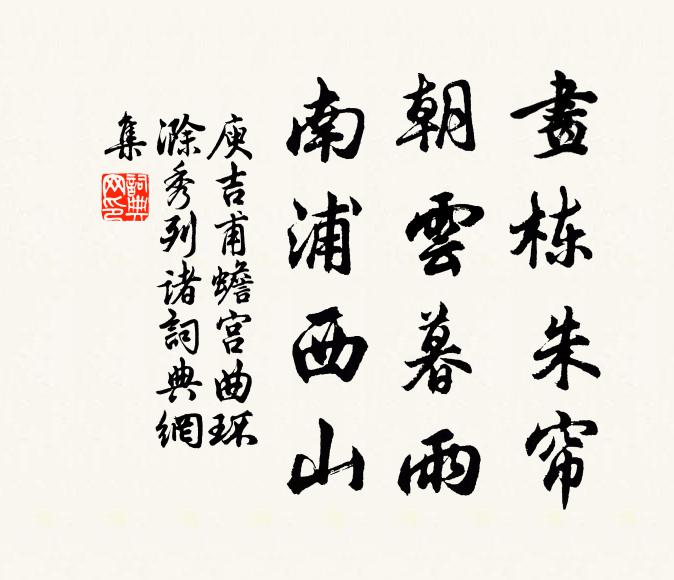 畫栋朱帘
朝雲暮雨
南浦西山
庾吉甫蟾宫曲环
滁秀列诸詞典網
集
詞典
网印